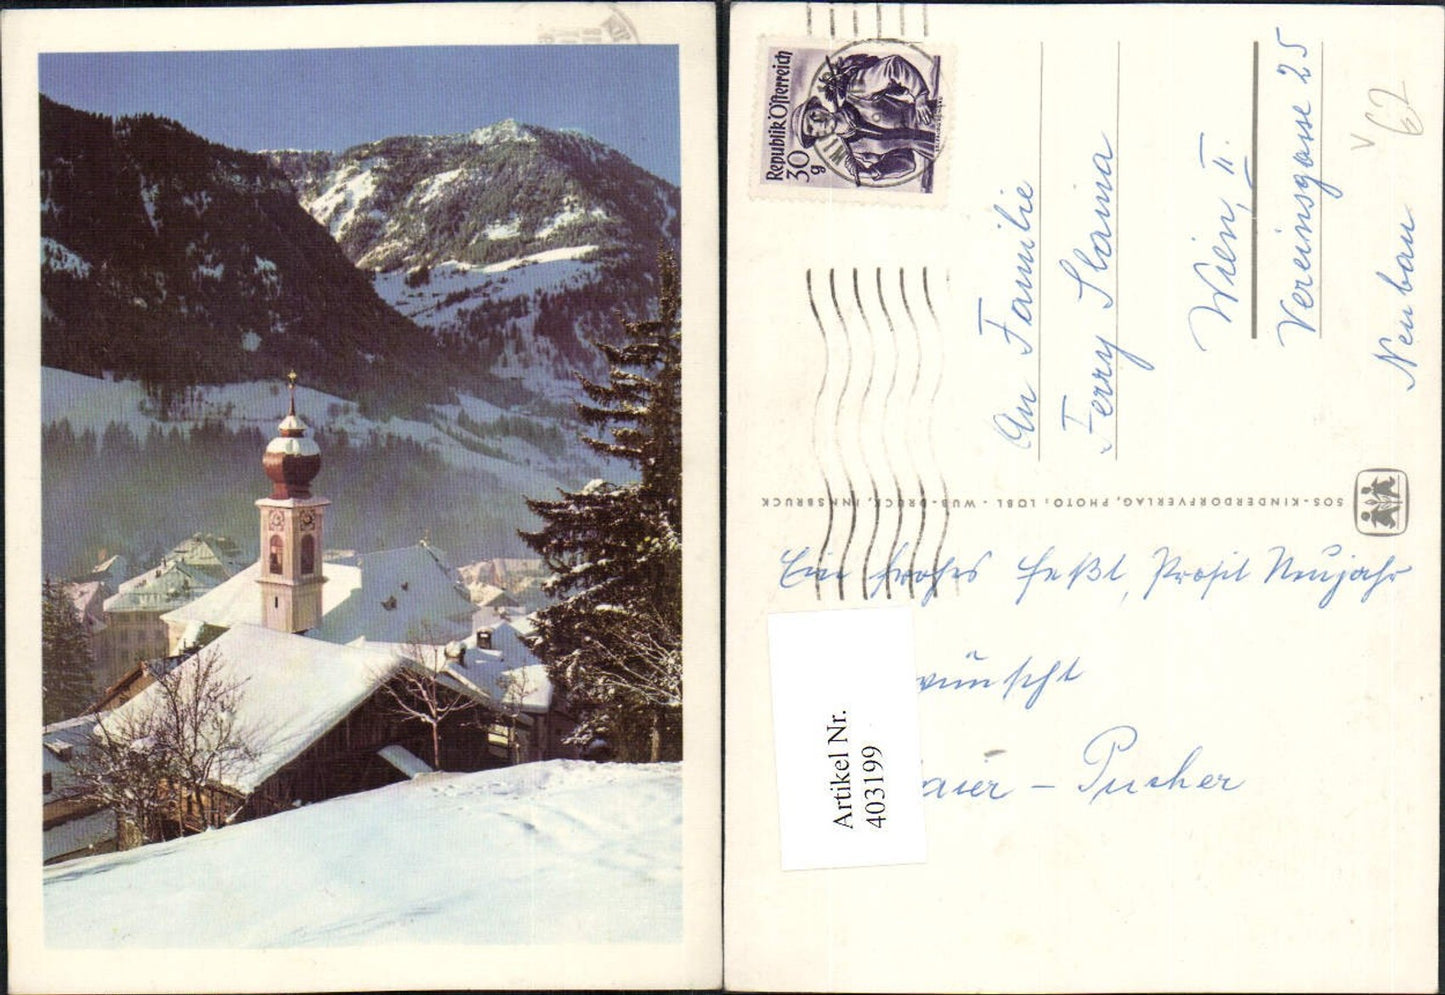 Republik Österreich
30
g
WIEN
An Familie
Ferry Slama
Wien, II.
Vereinsgasse 25
Neubau
62
SOS-KINDERDORFVERLAG, PHOTO: LÖBL - WUB-DRUCK, INNSBRUCK
Ein frohes Feßt, Prosit Neujahr
wünscht
aier - Pucher
Artikel Nr.
403199